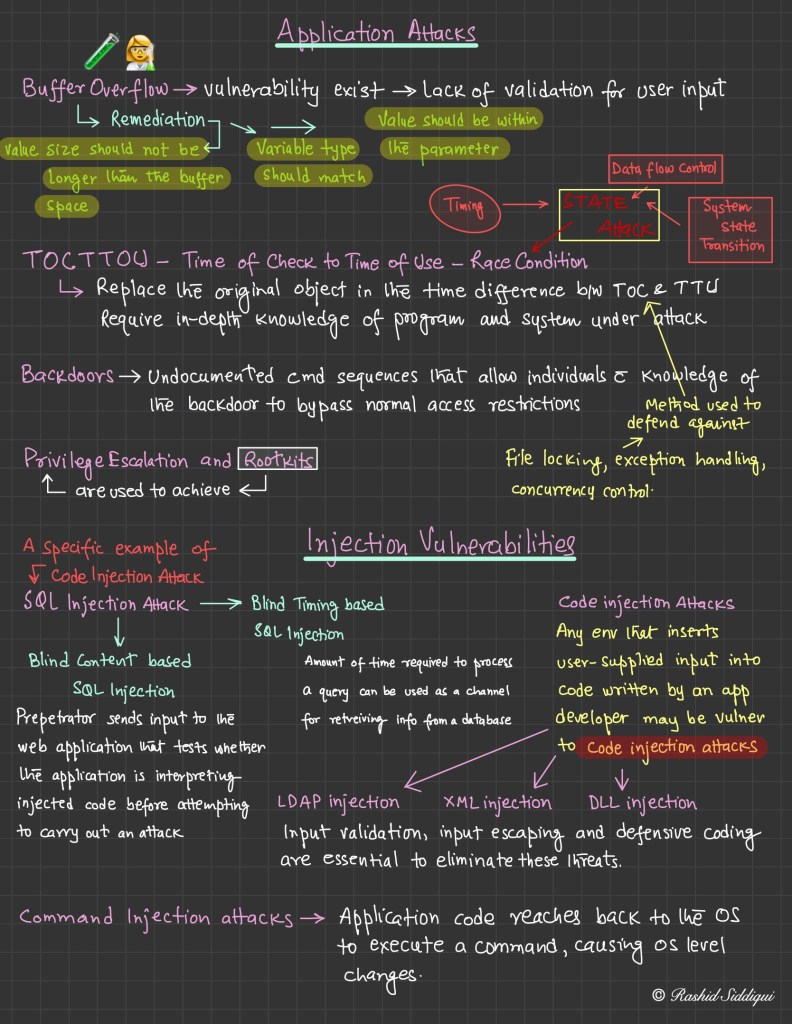 Application Attacks
Buffer Overflow → vulnerability exist → Lack of validation for user input
Remediation
value size should not be
longer than the buffer
space
Variable type
should match
Value should be within
the parameter
Timing
STATE
Attack
Data flow Control
System
State
Transition
TOCTTOU – Time of Check to Time of Use – Race Condition
Replace the original object in the time difference b/w TOC & TTU
Require in-depth knowledge of program and system under attack
Backdoors → Undocumented cmd sequences that allow individuals c̄ knowledge of
the backdoor to bypass normal access restrictions
Method used to
defend against
File locking, exception handling,
concurrency control.
Privilege Escalation and Rootkits
are used to achieve
Injection Vulnerabilities
A specific example of
Code Injection Attack
SQL Injection Attack → Blind Timing based
SQL Injection
Amount of time required to process
a query can be used as a channel
for retreiving info from a database
Blind Content based
SQL Injection
Prepetrator sends input to the
web application that tests whether
the application is interpreting
injected code before attempting
to carry out an attack
Code injection Attacks
Any env that inserts
user-supplied input into
code written by an app
developer may be vulner
to Code injection attacks
LDAP injection XML injection DLL injection
Input validation, input escaping and defensive coding
are essential to eliminate these threats.
Command Injection attacks → Application code reaches back to the OS
to execute a command, causing OS level
changes.
© Rashid Siddiqui